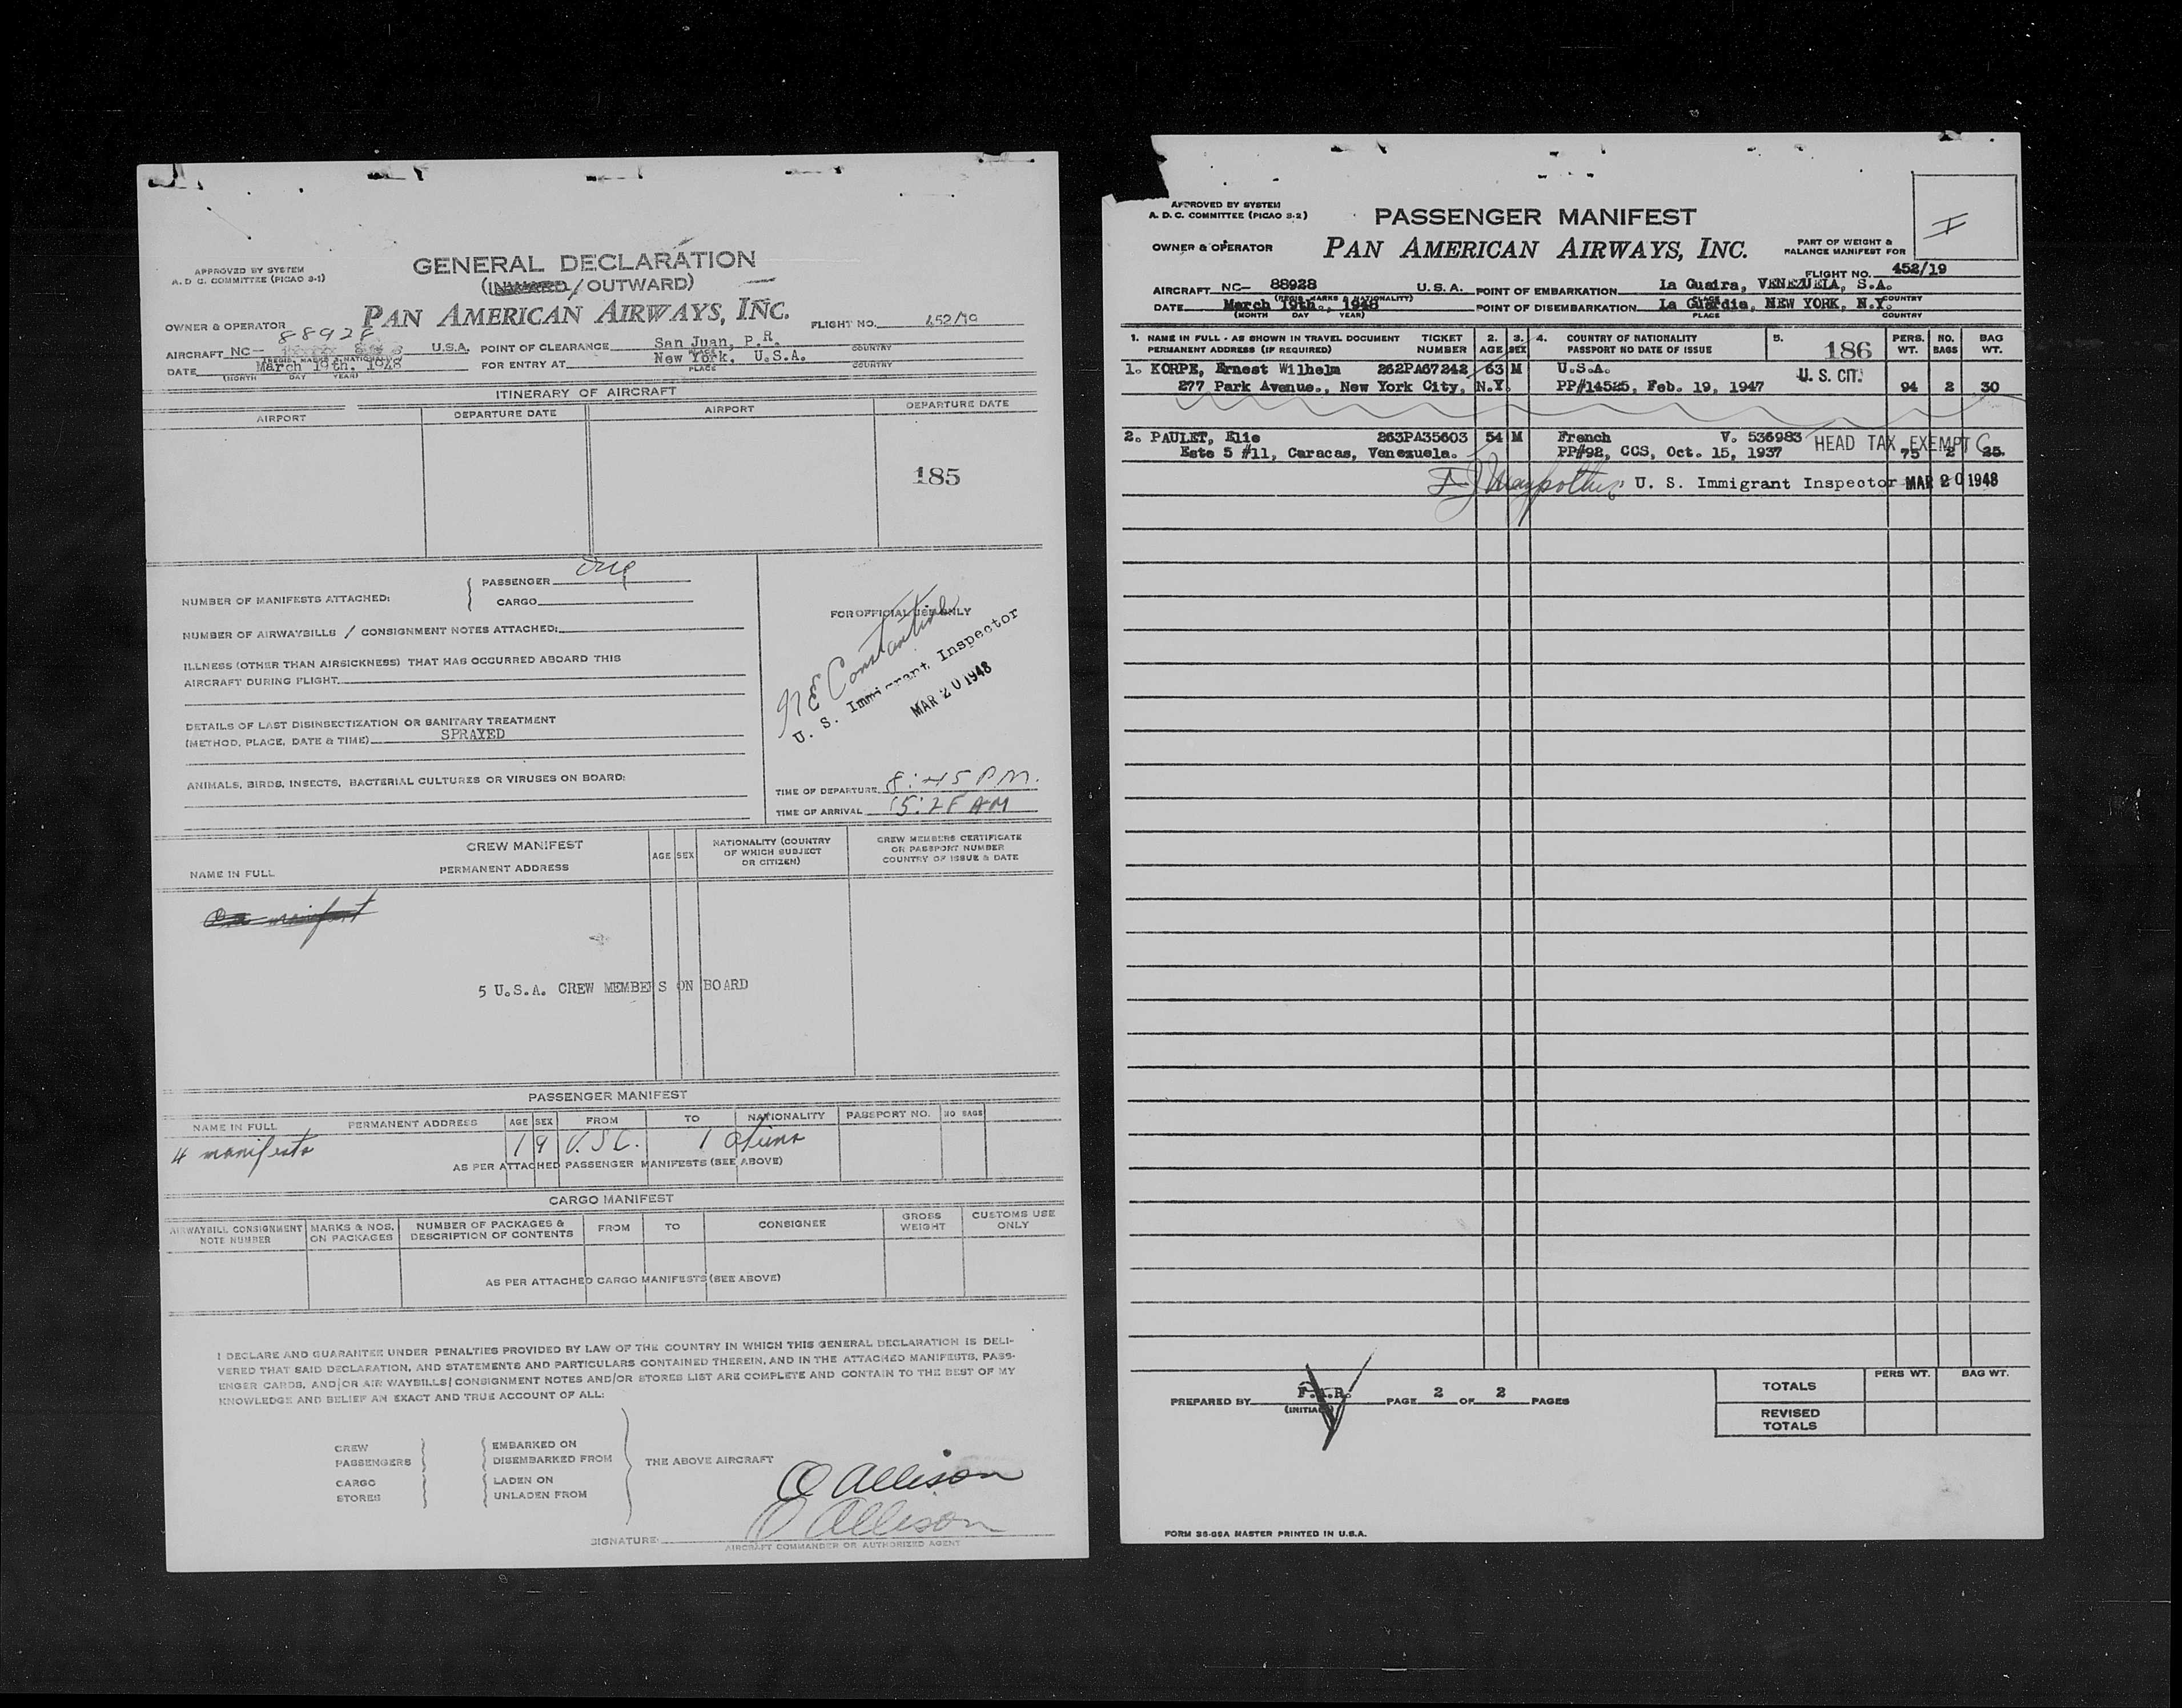 APPROVED BY SYSTEM
A. D. C. COMMITTEE (PICAO 3-1)
GENERAL DECLARATION
(INWARD/OUTWARD)
PAN AMERICAN AIRWAYS, INC.
OWNER & OPERATOR
FLIGHT NO. 452/19
88928
AIRCRAFT NC- U.S.A. POINT OF CLEARANCE San Juan, P.R. COUNTRY
(REGIS. MARKS & NATIONALITY) PLACE
DATE March 19th, 1948 FOR ENTRY AT New York, U.S.A. COUNTRY
(MONTH DAY YEAR) PLACE
ITINERARY OF AIRCRAFT
AIRPORT DEPARTURE DATE AIRPORT DEPARTURE DATE
185
NUMBER OF MANIFESTS ATTACHED: PASSENGER
CARGO
NUMBER OF AIRWAYBILLS / CONSIGNMENT NOTES ATTACHED:
ILLNESS (OTHER THAN AIRSICKNESS) THAT HAS OCCURRED ABOARD THIS
AIRCRAFT DURING FLIGHT
DETAILS OF LAST DISINSECTIZATION OR SANITARY TREATMENT
(METHOD, PLACE, DATE & TIME) SPRAYED
ANIMALS, BIRDS, INSECTS, BACTERIAL CULTURES OR VIRUSES ON BOARD:
FOR OFFICIAL USE ONLY
N E Constantine
U. S. Immigrant Inspector
MAR 20 1948
TIME OF DEPARTURE 8:45 PM.
TIME OF ARRIVAL 5:28 AM
CREW MANIFEST
NAME IN FULL PERMANENT ADDRESS AGE SEX NATIONALITY (COUNTRY OF WHICH SUBJECT OR CITIZEN) CREW MEMBERS CERTIFICATE OR PASSPORT NUMBER COUNTRY OF ISSUE & DATE
On manifest
5 U.S.A. CREW MEMBERS ON BOARD
PASSENGER MANIFEST
NAME IN FULL PERMANENT ADDRESS AGE SEX FROM TO NATIONALITY PASSPORT NO. NO BAGS
4 manifests 19 U.S.C. 1 aliens
AS PER ATTACHED PASSENGER MANIFESTS (SEE ABOVE)
CARGO MANIFEST
AIRWAYBILL CONSIGNMENT NOTE NUMBER MARKS & NOS. ON PACKAGES NUMBER OF PACKAGES & DESCRIPTION OF CONTENTS FROM TO CONSIGNEE GROSS WEIGHT CUSTOMS USE ONLY
AS PER ATTACHED CARGO MANIFESTS (SEE ABOVE)
I DECLARE AND GUARANTEE UNDER PENALTIES PROVIDED BY LAW OF THE COUNTRY IN WHICH THIS GENERAL DECLARATION IS DELI-
VERED THAT SAID DECLARATION, AND STATEMENTS AND PARTICULARS CONTAINED THEREIN, AND IN THE ATTACHED MANIFESTS, PASS-
ENGER CARDS, AND/OR AIR WAYBILLS/CONSIGNMENT NOTES AND/OR STORES LIST ARE COMPLETE AND CONTAIN TO THE BEST OF MY
KNOWLEDGE AND BELIEF AN EXACT AND TRUE ACCOUNT OF ALL:
CREW EMBARKED ON
PASSENGERS DISEMBARKED FROM THE ABOVE AIRCRAFT
CARGO LADEN ON
STORES UNLADEN FROM
O Allison
O Allison
SIGNATURE:
AIRCRAFT COMMANDER OR AUTHORIZED AGENT
APPROVED BY SYSTEM
A. D. C. COMMITTEE (PICAO 3-2)
PASSENGER MANIFEST
OWNER & OPERATOR PAN AMERICAN AIRWAYS, INC.
PART OF WEIGHT &
BALANCE MANIFEST FOR
I
FLIGHT NO. 452/19
AIRCRAFT NC- 88928 U.S.A. POINT OF EMBARKATION La Guaira, VENEZUELA, S.A.
(REGIS. MARKS & NATIONALITY) PLACE COUNTRY
DATE March 19th., 1948 POINT OF DISEMBARKATION La Guardia, NEW YORK, N.Y.
(MONTH DAY YEAR) PLACE COUNTRY
1. NAME IN FULL - AS SHOWN IN TRAVEL DOCUMENT PERMANENT ADDRESS (IF REQUIRED) TICKET NUMBER 2. AGE 3. SEX 4. COUNTRY OF NATIONALITY PASSPORT NO DATE OF ISSUE 5. 186 PERS. WT. NO. BAGS BAG WT.
1. KORPE, Ernest Wilhelm 262PA67242 63 M U.S.A. U. S. CIT.
277 Park Avenue., New York City, N.Y. PP#14525, Feb. 19, 1947 94 2 30
2. PAULET, Elie 263PA35603 54 M French V. 536983 HEAD TAX EXEMPT
Este 5 #11, Caracas, Venezuela. PP#92, CCS, Oct. 15, 1937 75 2 25.
U. S. Immigrant Inspector MAR 20 1948
PREPARED BY F.A.R. PAGE 2 OF 2 PAGES
(INITIAL)
PERS WT. BAG WT.
TOTALS
REVISED TOTALS
FORM 36-09A MASTER PRINTED IN U.S.A.